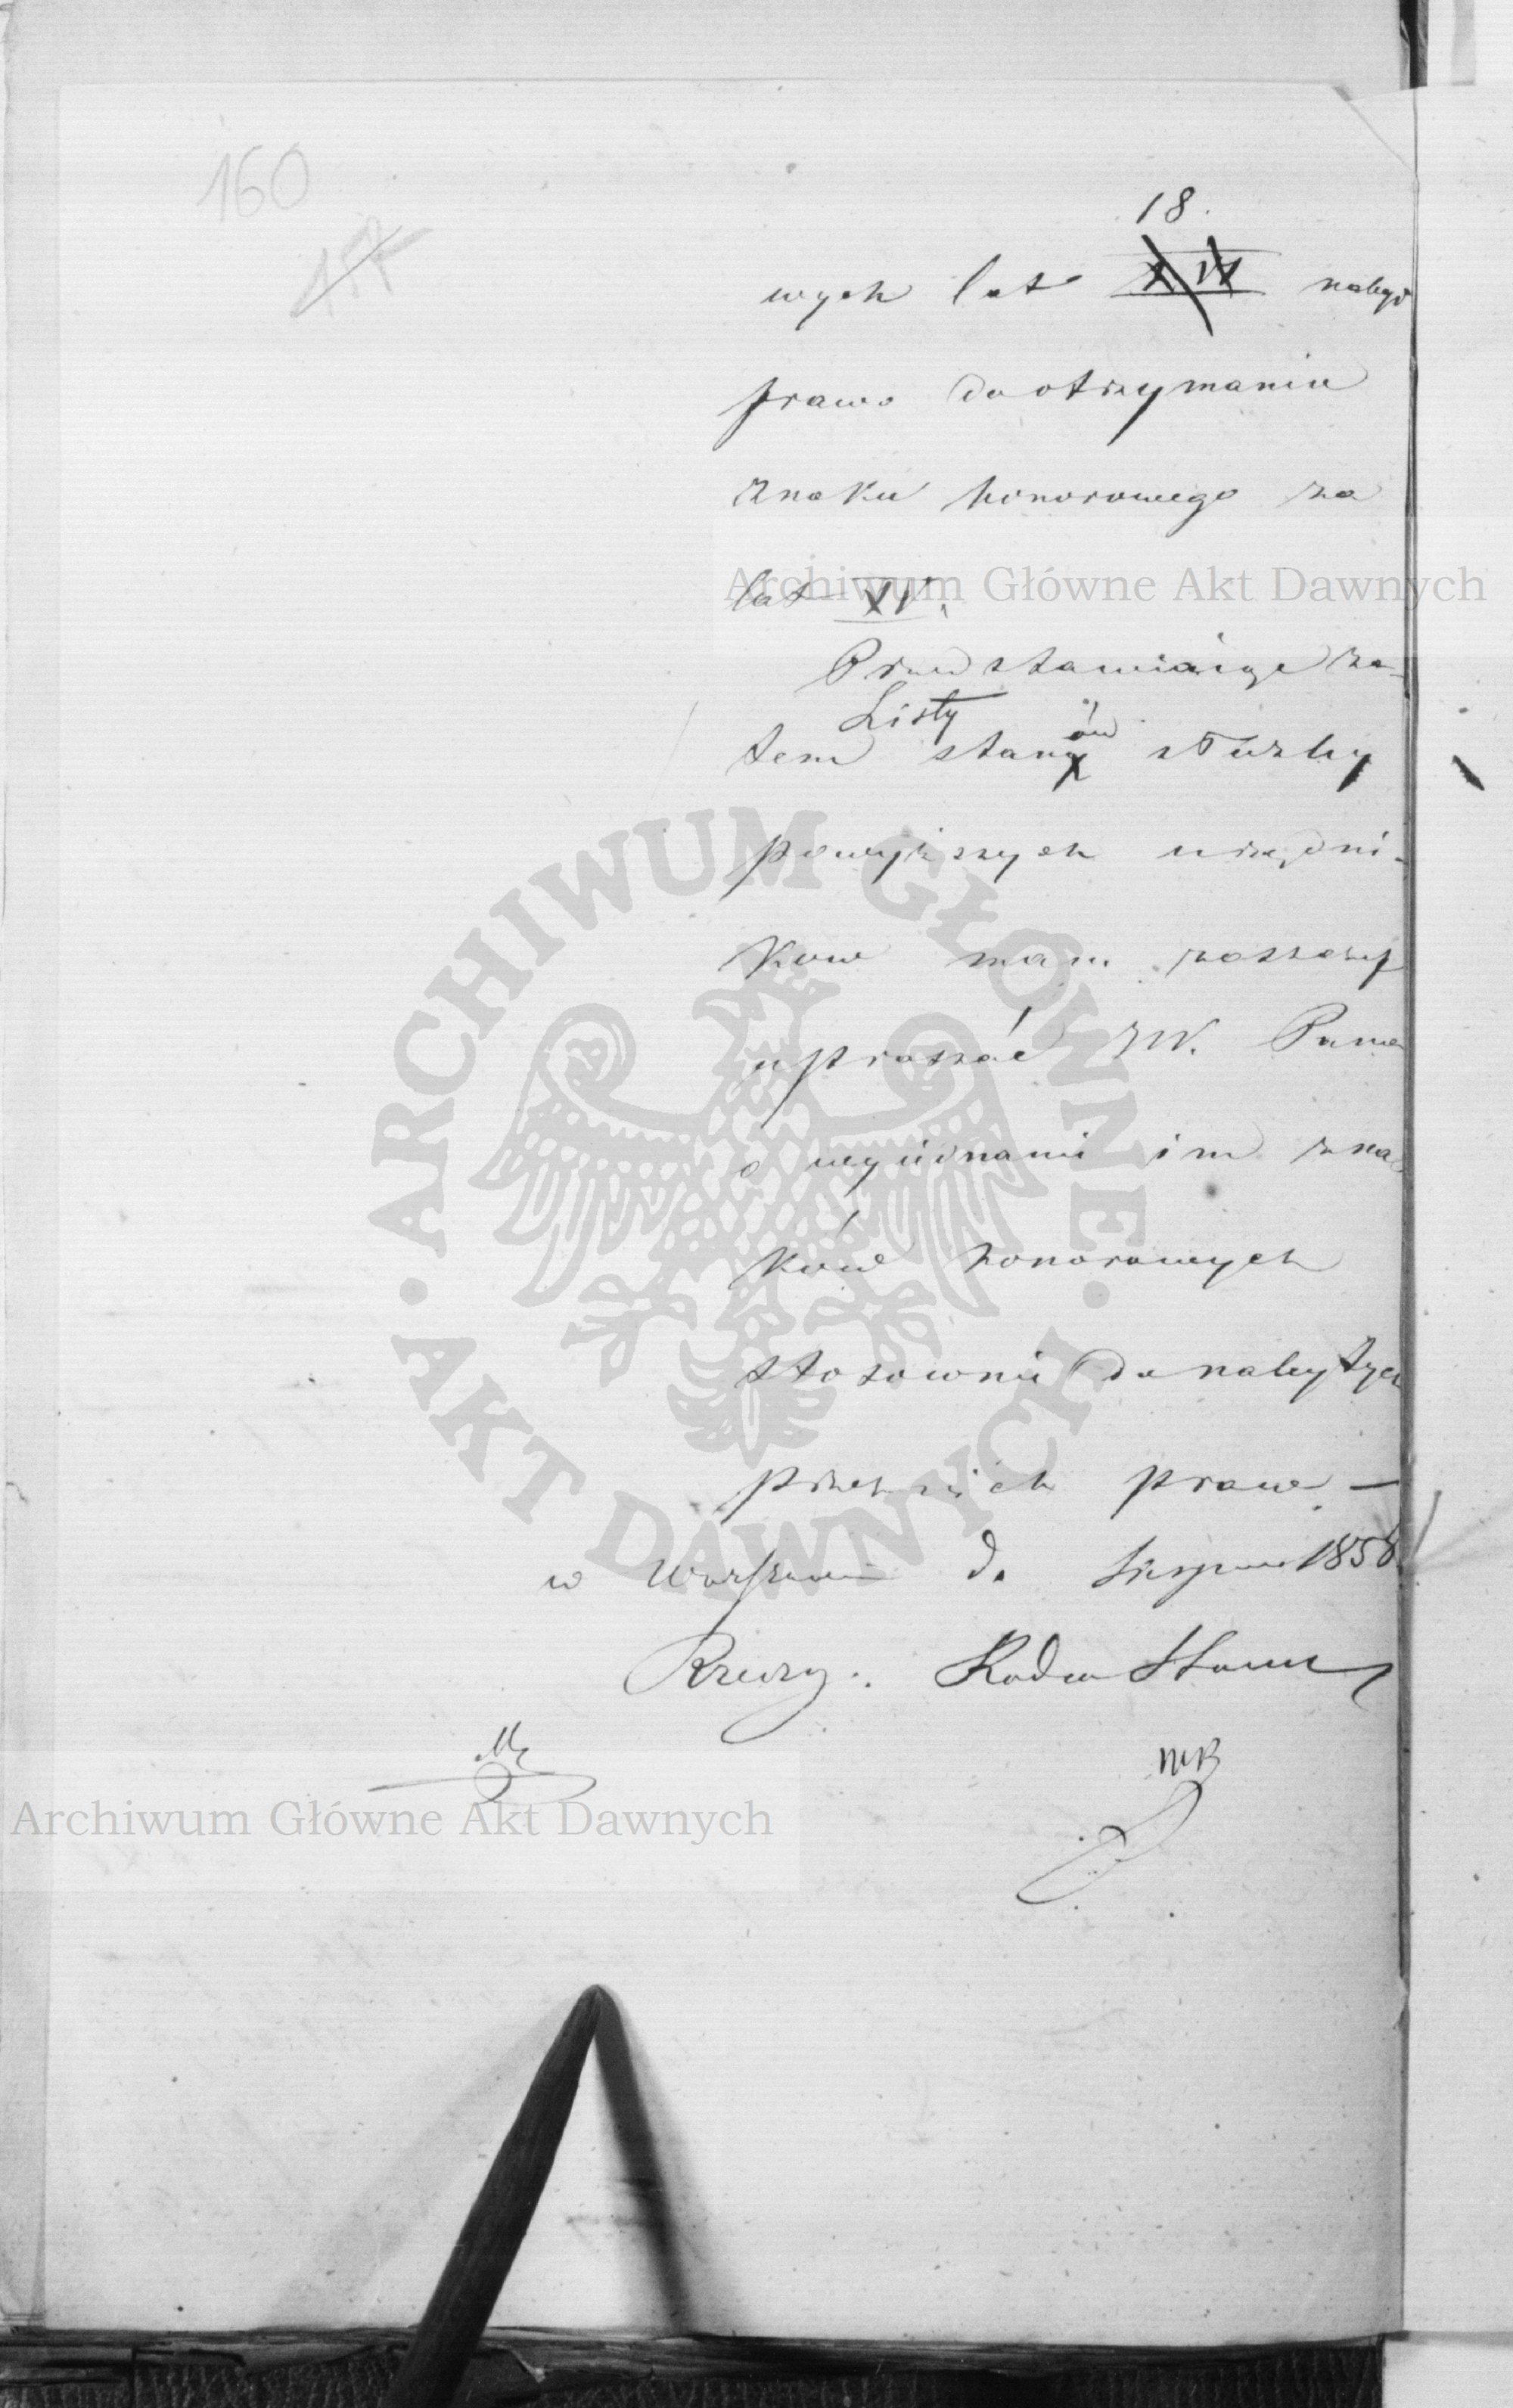 160
18.
wych lat XVI nabył
prawo do otrzymania
znaku honorowego za
lat XV.
Przedstawiając za-
Listy
tem stanów służby
powyższych urzędni-
kow mam zaszczyt
upraszać JW. Pana
o wyiednanie im zna-
ków honorowych
stosownie do nabytych
przez nich praw —
w Warszawie d. Sierpnia 1858
Rzeczy. Radca Stanu
Archiwum Główne Akt Dawnych
Archiwum Główne Akt Dawnych
ARCHIWUM GŁÓWNE AKT DAWNYCH